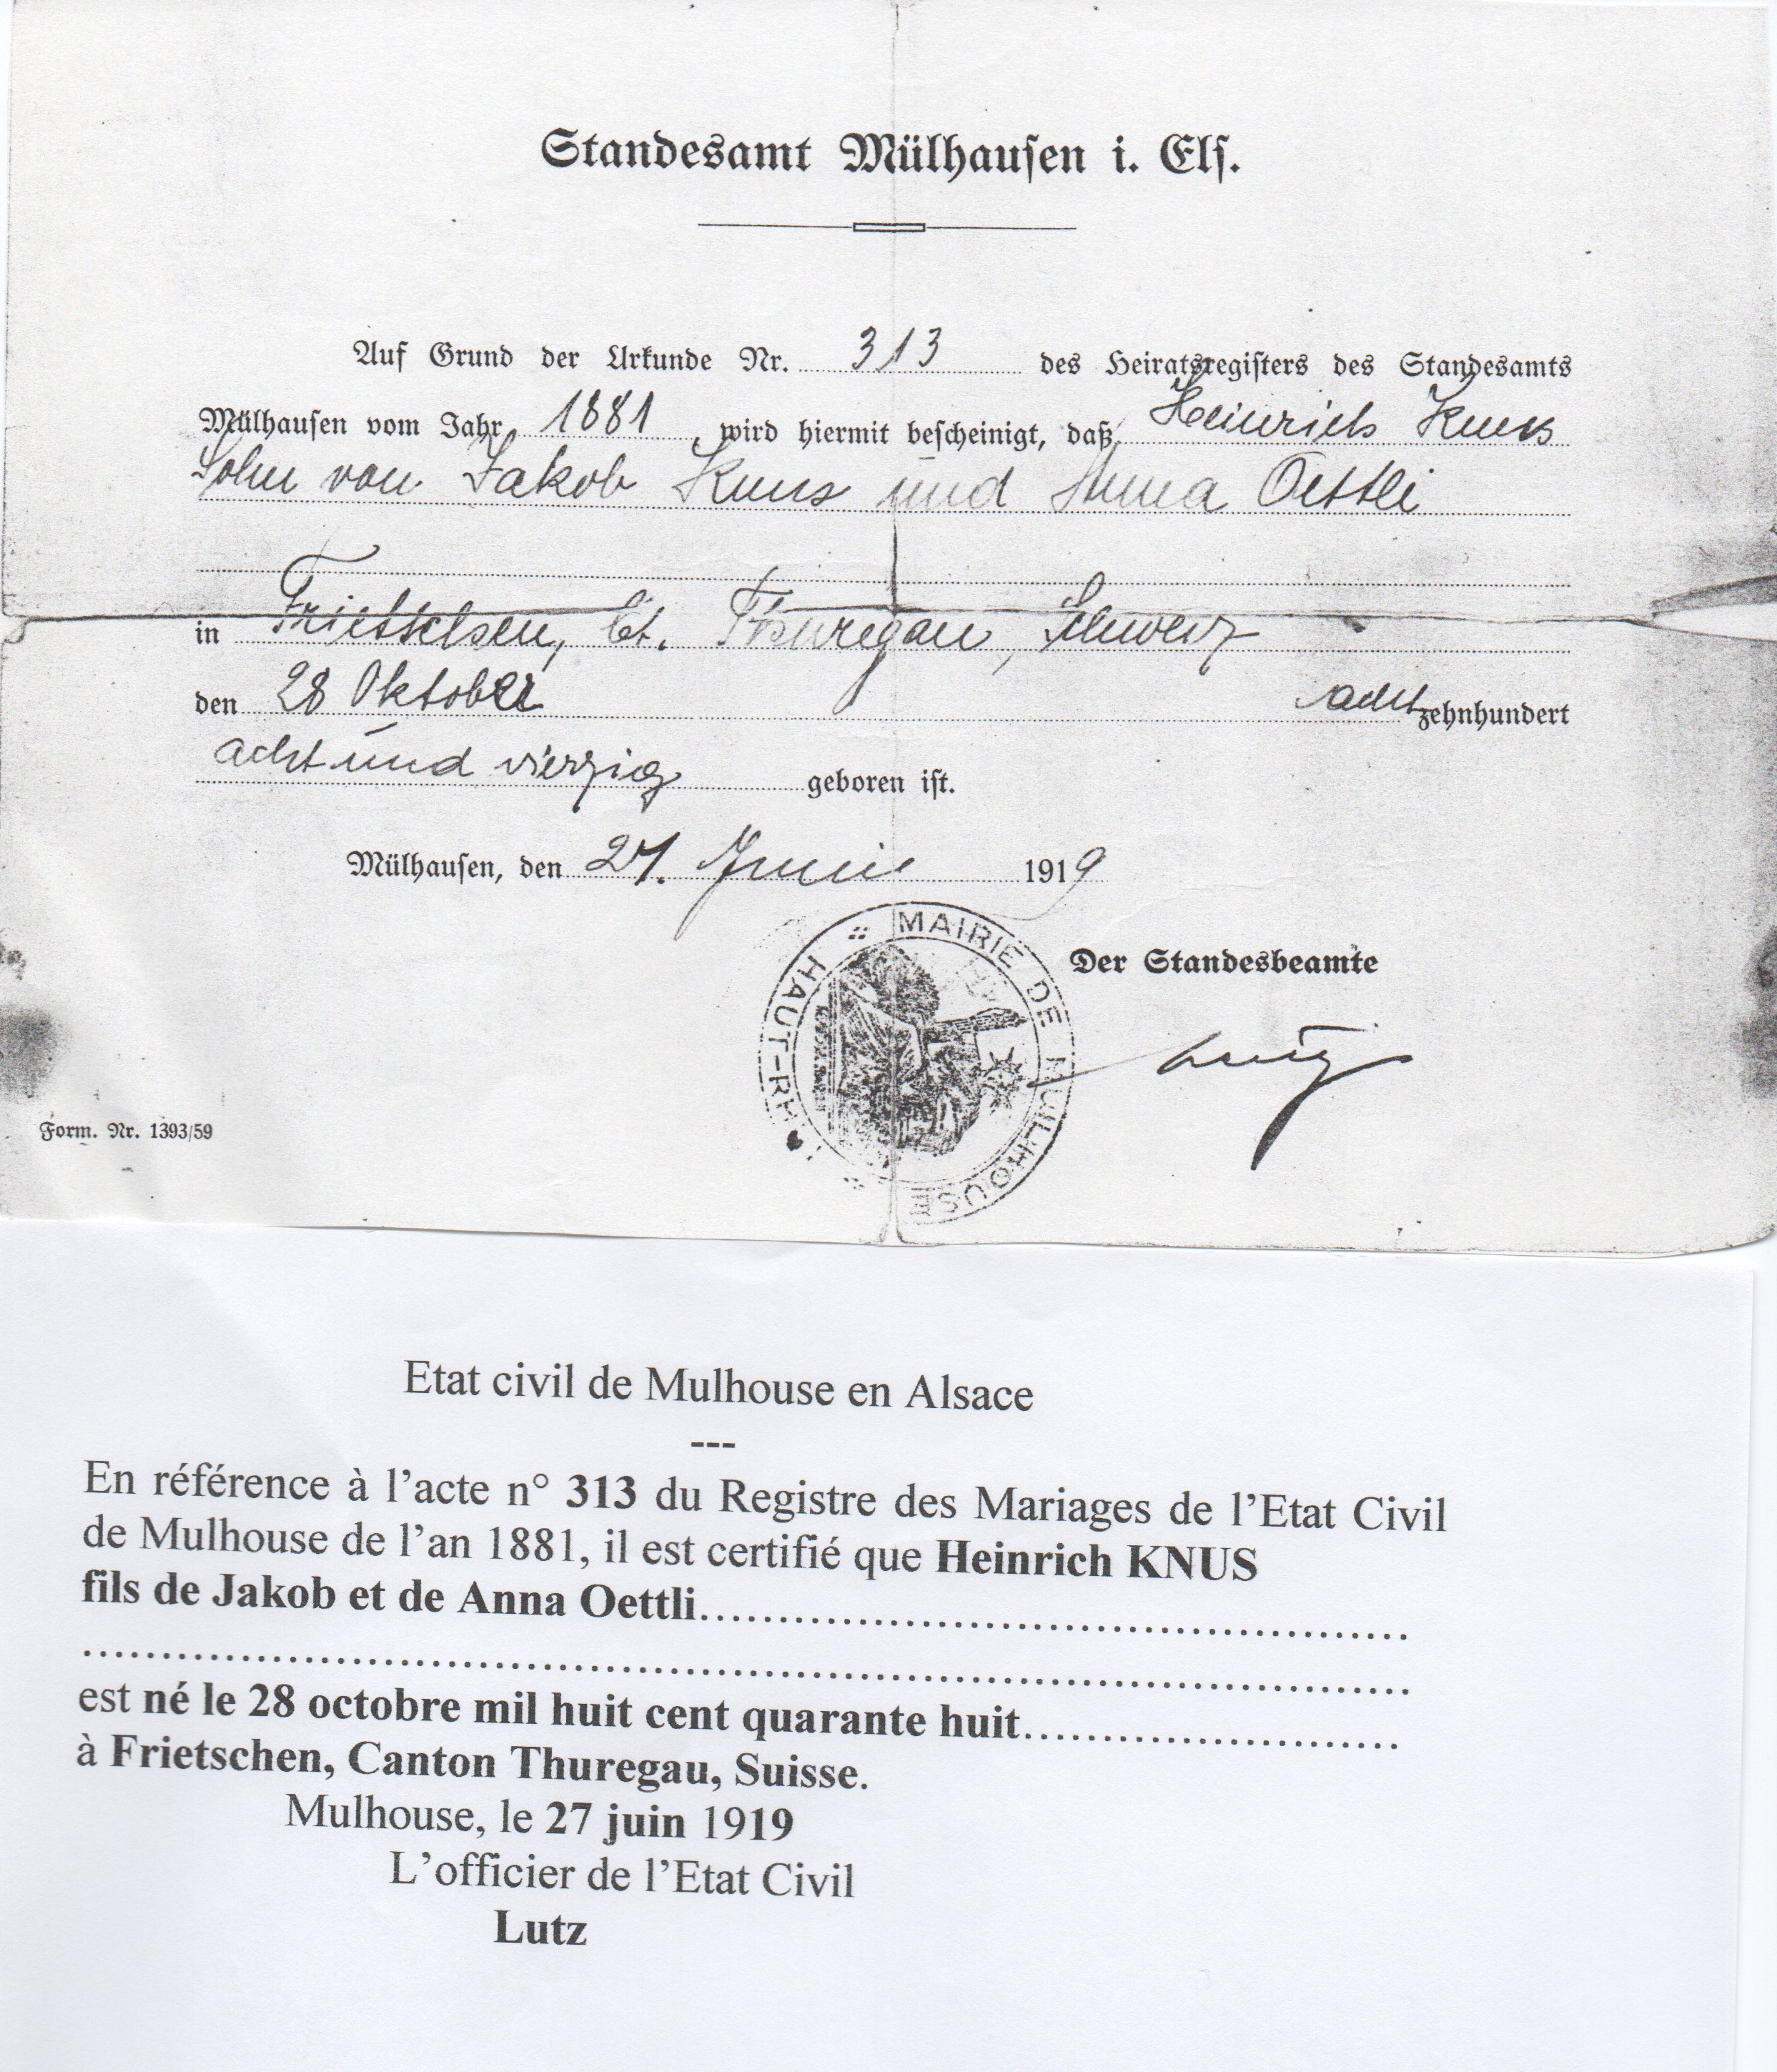 Standesamt Mülhausen i. Els.
Auf Grund der Urkunde Nr. 313 des Heiratsregisters des Standesamts
Mülhausen vom Jahr 1881, wird hiermit bescheinigt, daß Heinrich Knus
Sohn von Jakob Knus und Anna Oettli
in Frietschen, Ct. Thuregau, Schweiz
den 28 Oktober achtzehnhundert
acht und vierzig geboren ist.
Mülhausen, den 27. Juni 1919
MAIRIE DE MULHOUSE
HAUT-RH
Der Standesbeamte
Lutz
Form. Nr. 1393/59
Etat civil de Mulhouse en Alsace
---
En référence à l'acte n° 313 du Registre des Mariages de l'Etat Civil
de Mulhouse de l'an 1881, il est certifié que Heinrich KNUS
fils de Jakob et de Anna Oettli
est né le 28 octobre mil huit cent quarante huit
à Frietschen, Canton Thuregau, Suisse.
Mulhouse, le 27 juin 1919
L'officier de l'Etat Civil
Lutz